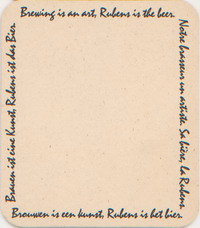 Brewing is an art, Rubens is the beer.
Notre brasseur un artiste. Sa bière, la Rubens.
Brouwen is een kunst, Rubens is het bier.
Brauen ist eine Kunst, Rubens ist das Bier.